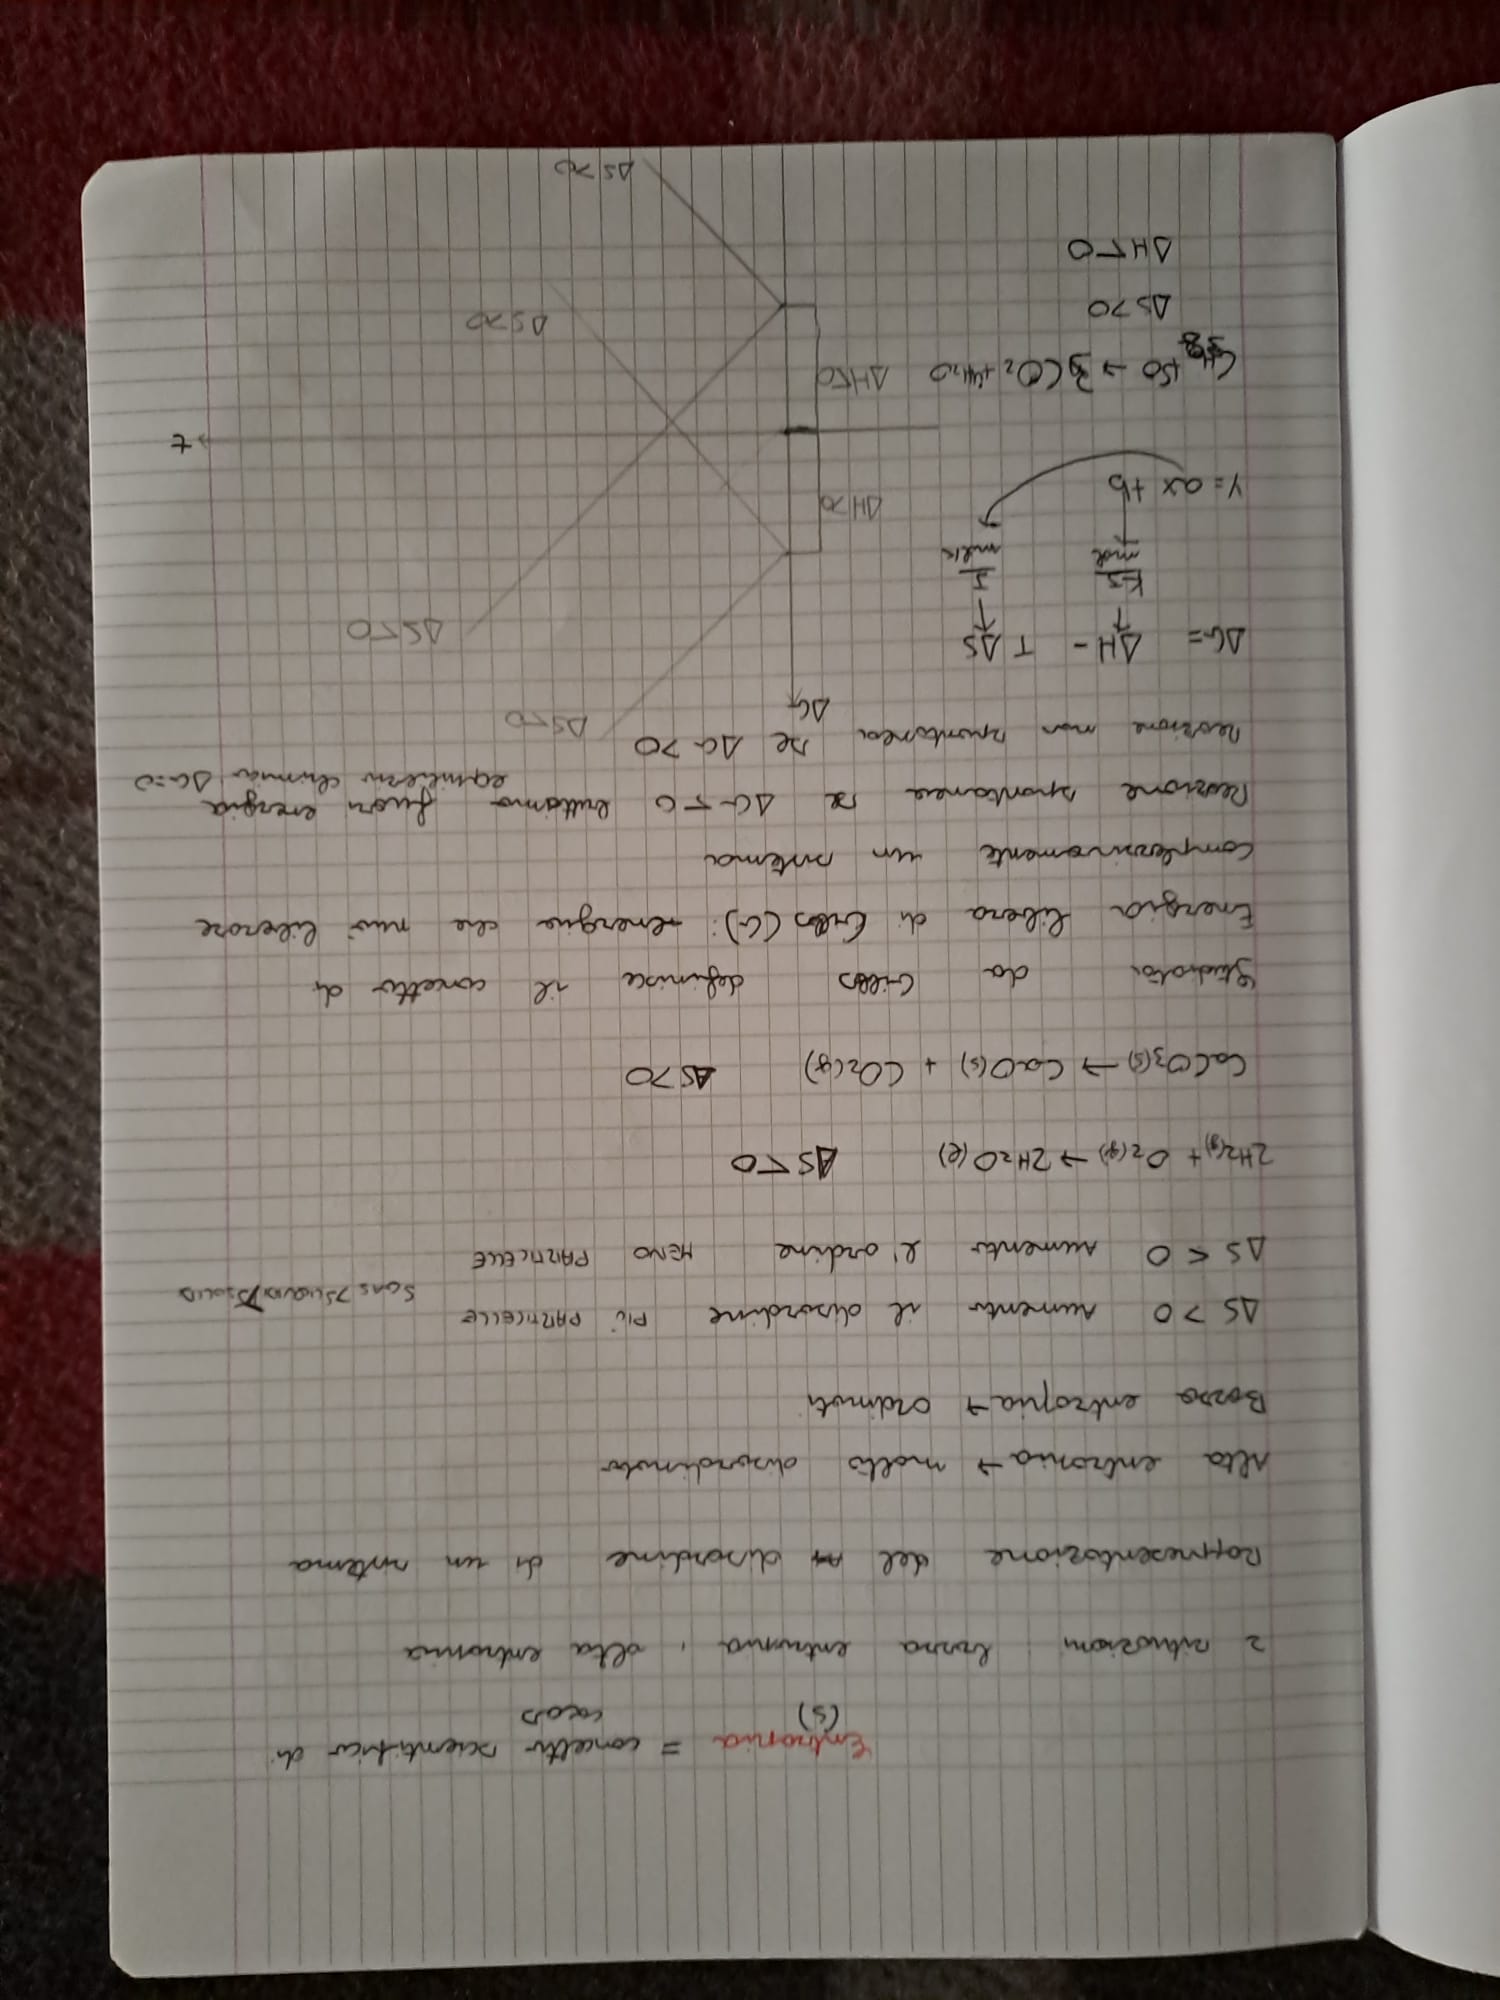 Entropia = concetto scientifico di
(S) caos
2 situazioni: bassa entropia, alta entropia
Rappresentazione del disordine di un sistema
Alta entropia → molto disordinato
Bassa entropia → ordinati
ΔS > 0 Aumento il disordine PIÙ PARTICELLE
SGAS > SLIQUIDI > SSOLID
ΔS < 0 Aumento l'ordine MENO PARTICELLE
2H2(g) + O2(g) → 2H2O(l) ΔS<0
CaCO3(s) → CaO(s) + CO2(g) ΔS>0
Studiata da Gibbs definisce il concetto di
Energia libera di Gibbs (G): energia che può liberare
complessivamente un sistema
Reazione spontanea se ΔG<0 buttiamo fuori energia
equilibrio chimico ΔG=0
Reazione non spontanea se ΔG>0
ΔG
ΔS<0
ΔG = ΔH - T ΔS
ΔS<0
KJ J
mol molK
ΔH>0
Y = ax + b
t
C3H8 + 5O → 3CO2 + 4H2O
ΔH<0
ΔS>0
ΔS>0
ΔH<0
ΔS>0